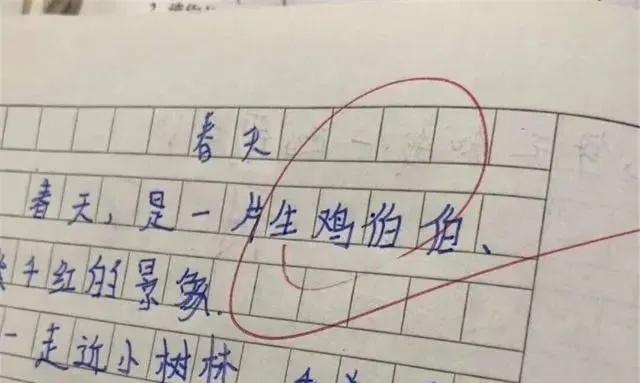 春天
春天,是一片生鸡伯伯、
千红的景象.
一走近小树林